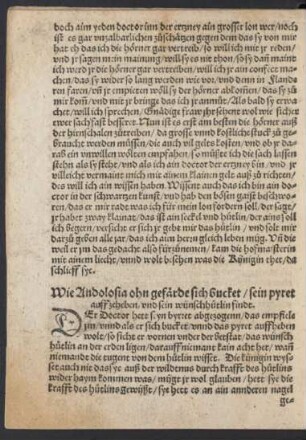 doch aim yeden doctor üm der ertzney ain grosser lon wer / noch
ist es gar unzalbarlichen züschätzen gegen dem das sy von mir
hat eh das ich die hörner gar vertreib / so will ich mit jr reden /
vnd jr sagen mein mainung / will sy es nit thon / so sy daß maint
ich werd jr die hörner gar vertreiben / will ich jr ain confect ma-
chen / das sy wider so lang werden wie vor / vnd denn in Flandern
von faren / vñ jr empieten wöll sy der hörner abkomen / das sy zů
mir kom / vnd mir jr bringe das ich jr anmůt / Als bald sy erwa-
chet / will ich sprechen / Gnädige fraw jhr sehent wol wie sich
ewer sach fast bessert. Nun ist es erst am besten die hörner auß
der hienschalen zůtreiben / da grosse vnnd kostliche stuck zů ge-
braucht werden müssen / die auch vil geltes kosten / vnd ob jr da-
ran ein vnwillen wolten empfahen / so müßte ich die sach lassen
stehn als sy steht / vnd als ich ain doctor der ertzney bin / vnd jr
villeicht vermaint mich mit ainem klainen gelt auß zů richten /
des will ich ain wissen haben. Wissent auch das ich bin ain doc-
tor in der schwartzen kunst / vnd hab den bösen gaist beschwo-
ren / das er mir radt was ich für mein lon fordern soll / der sagt /
jr habet zway klainat / das ist ain seckel vnd hütlin / der ains soll
ich begern / versicher er sich jr gebt mir das hütlin / vnd solt mir
dar zů geben alle jar / das ich ain herrn gleich leben müg. Vñ die
weil er jm das gedacht also fürzůnemen / kam die hofmaisterin
mit ainem liecht / vnnd wolt beschen was die Künigin thet / da
schlieff sye.
Wie Andolosia ohn gefärde sich bucket / sein pyret
auffzeheben / vnd sein wünschhütlin finde.
DEr Doctor hett syn byret abgezogenn / das empfiel
jm / vnnd als er sich bucket / vnnd das pyret auffheben
wolt / so sicht er vornen vnder der betstat / das wünsch
hütlin an der erden ligen / darauff niemant kain acht het / wañ
niemande die tugent von dem hütlin wisset. Die künigin wys-
set auch nit das sye auß der wildtnus durch krafft des hütlins
wider haym kommen was / mügt jr wol glauben / hett sye die
krafft des hütlins gewüßt / sye hett es an ain annderen nagel
ge-